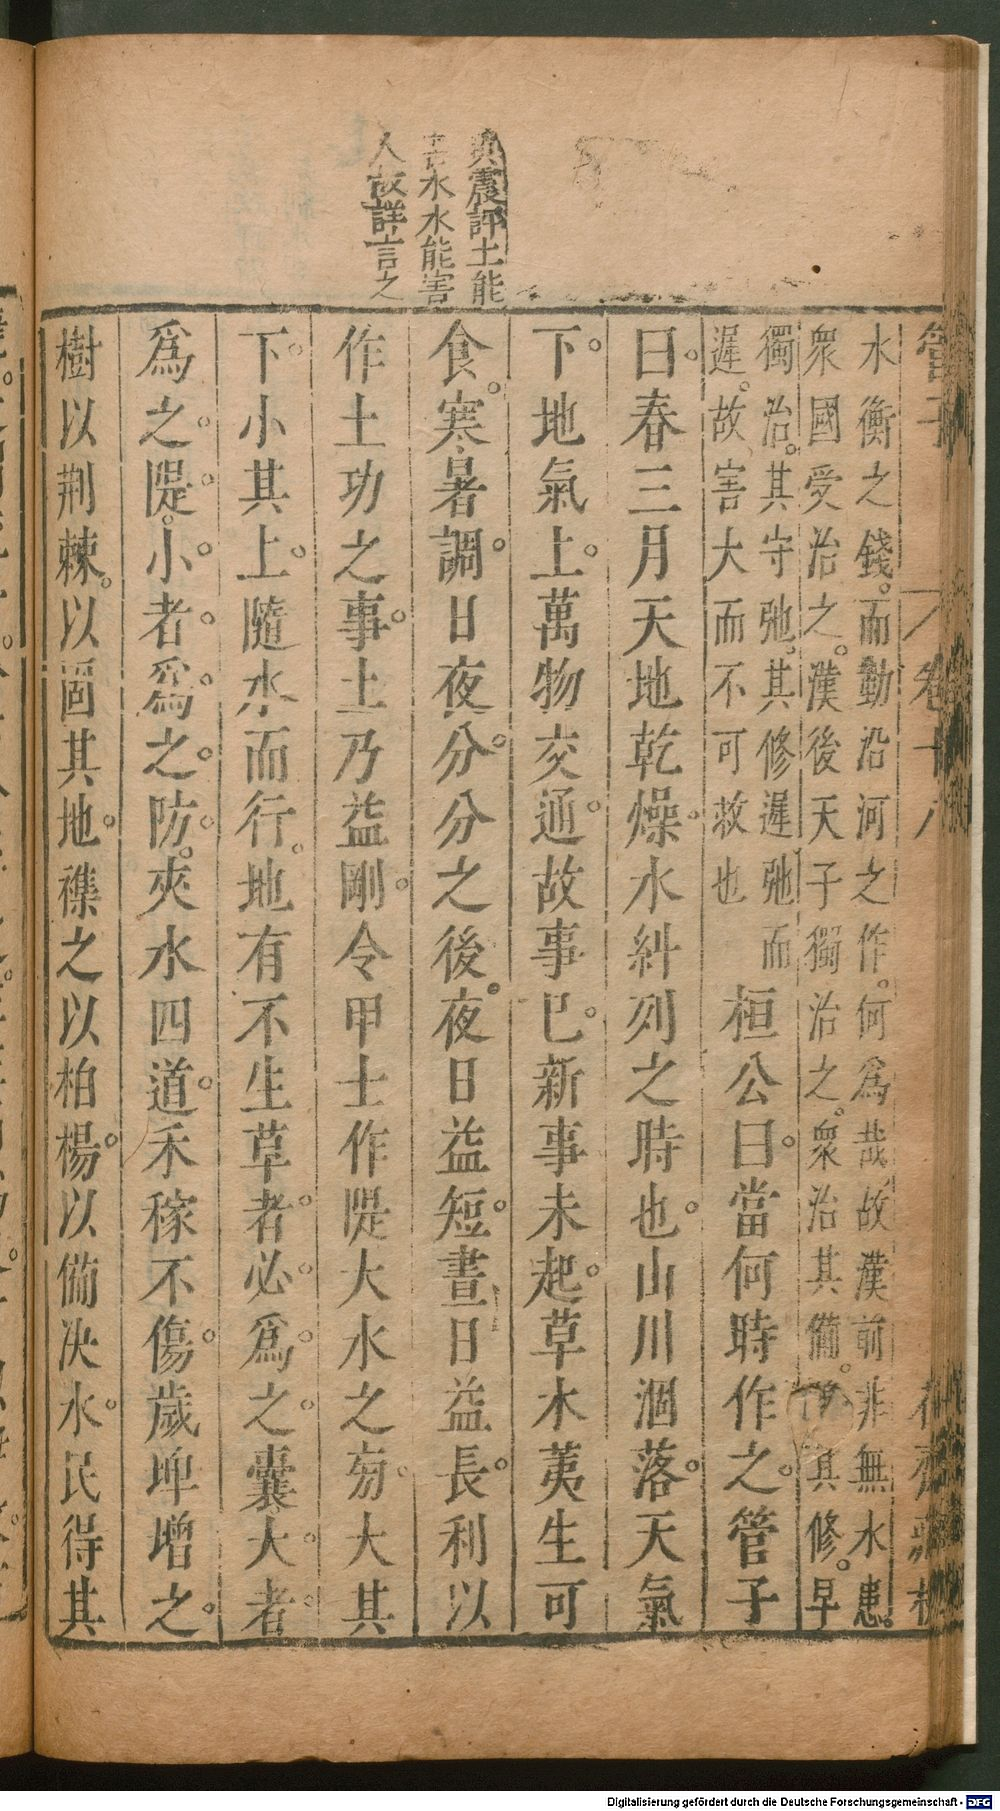 管子
卷十八
水衡之錢。而勤沿河之作。何爲哉。故漢前非無水患。
衆國受治之。漢後天子獨治之。衆治其備。其修。早
獨治。其守弛。其修遲弛而
遲。故害大而不可救也
桓公曰當何時作之管子
曰春三月天地乾燥水糾列之時也山川涸落天氣
下地氣上萬物交通故事已新事未起草木荑生可
食。寒暑調日夜分分之後。夜日益短晝日益長利以
作土功之事土乃益剛令甲士作隄大水之㫄大其
下小其上隨水而行。地有不生草者必爲之囊大者
爲之隄。小者爲之防。夾水四道禾稼不傷歲埤增之
樹以荆棘。以固其地襍之以柏楊以備决水民得其
震評土能
害水水能害
人故詳言之
Digitalisierung gefördert durch die Deutsche Forschungsgemeinschaft - DFG